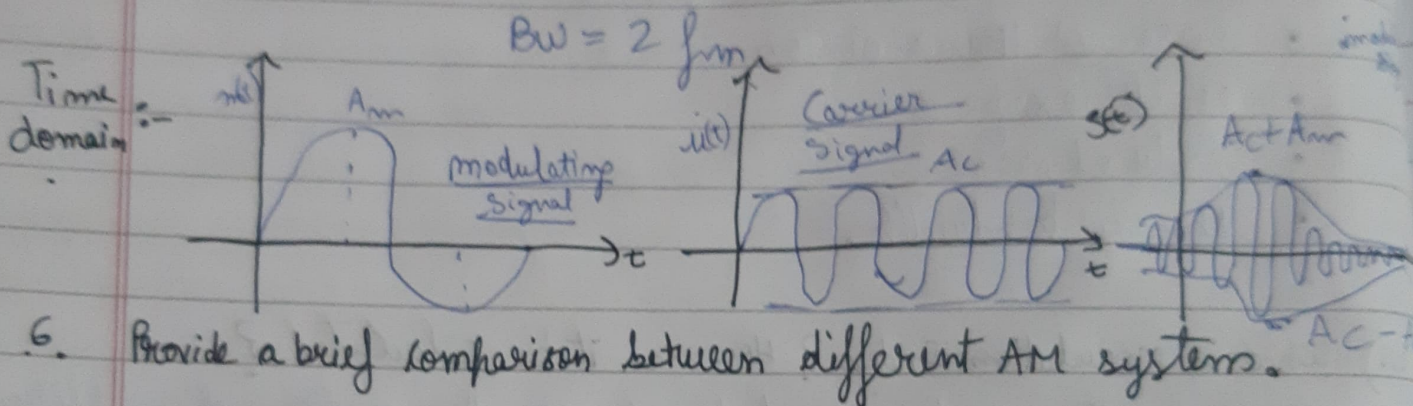 BW = 2 fm
Time domain :-
Am
modulating signal
t
Carrier signal
Ac
t
s(t)
Ac + Am
6. Provide a brief comparison between different AM system.